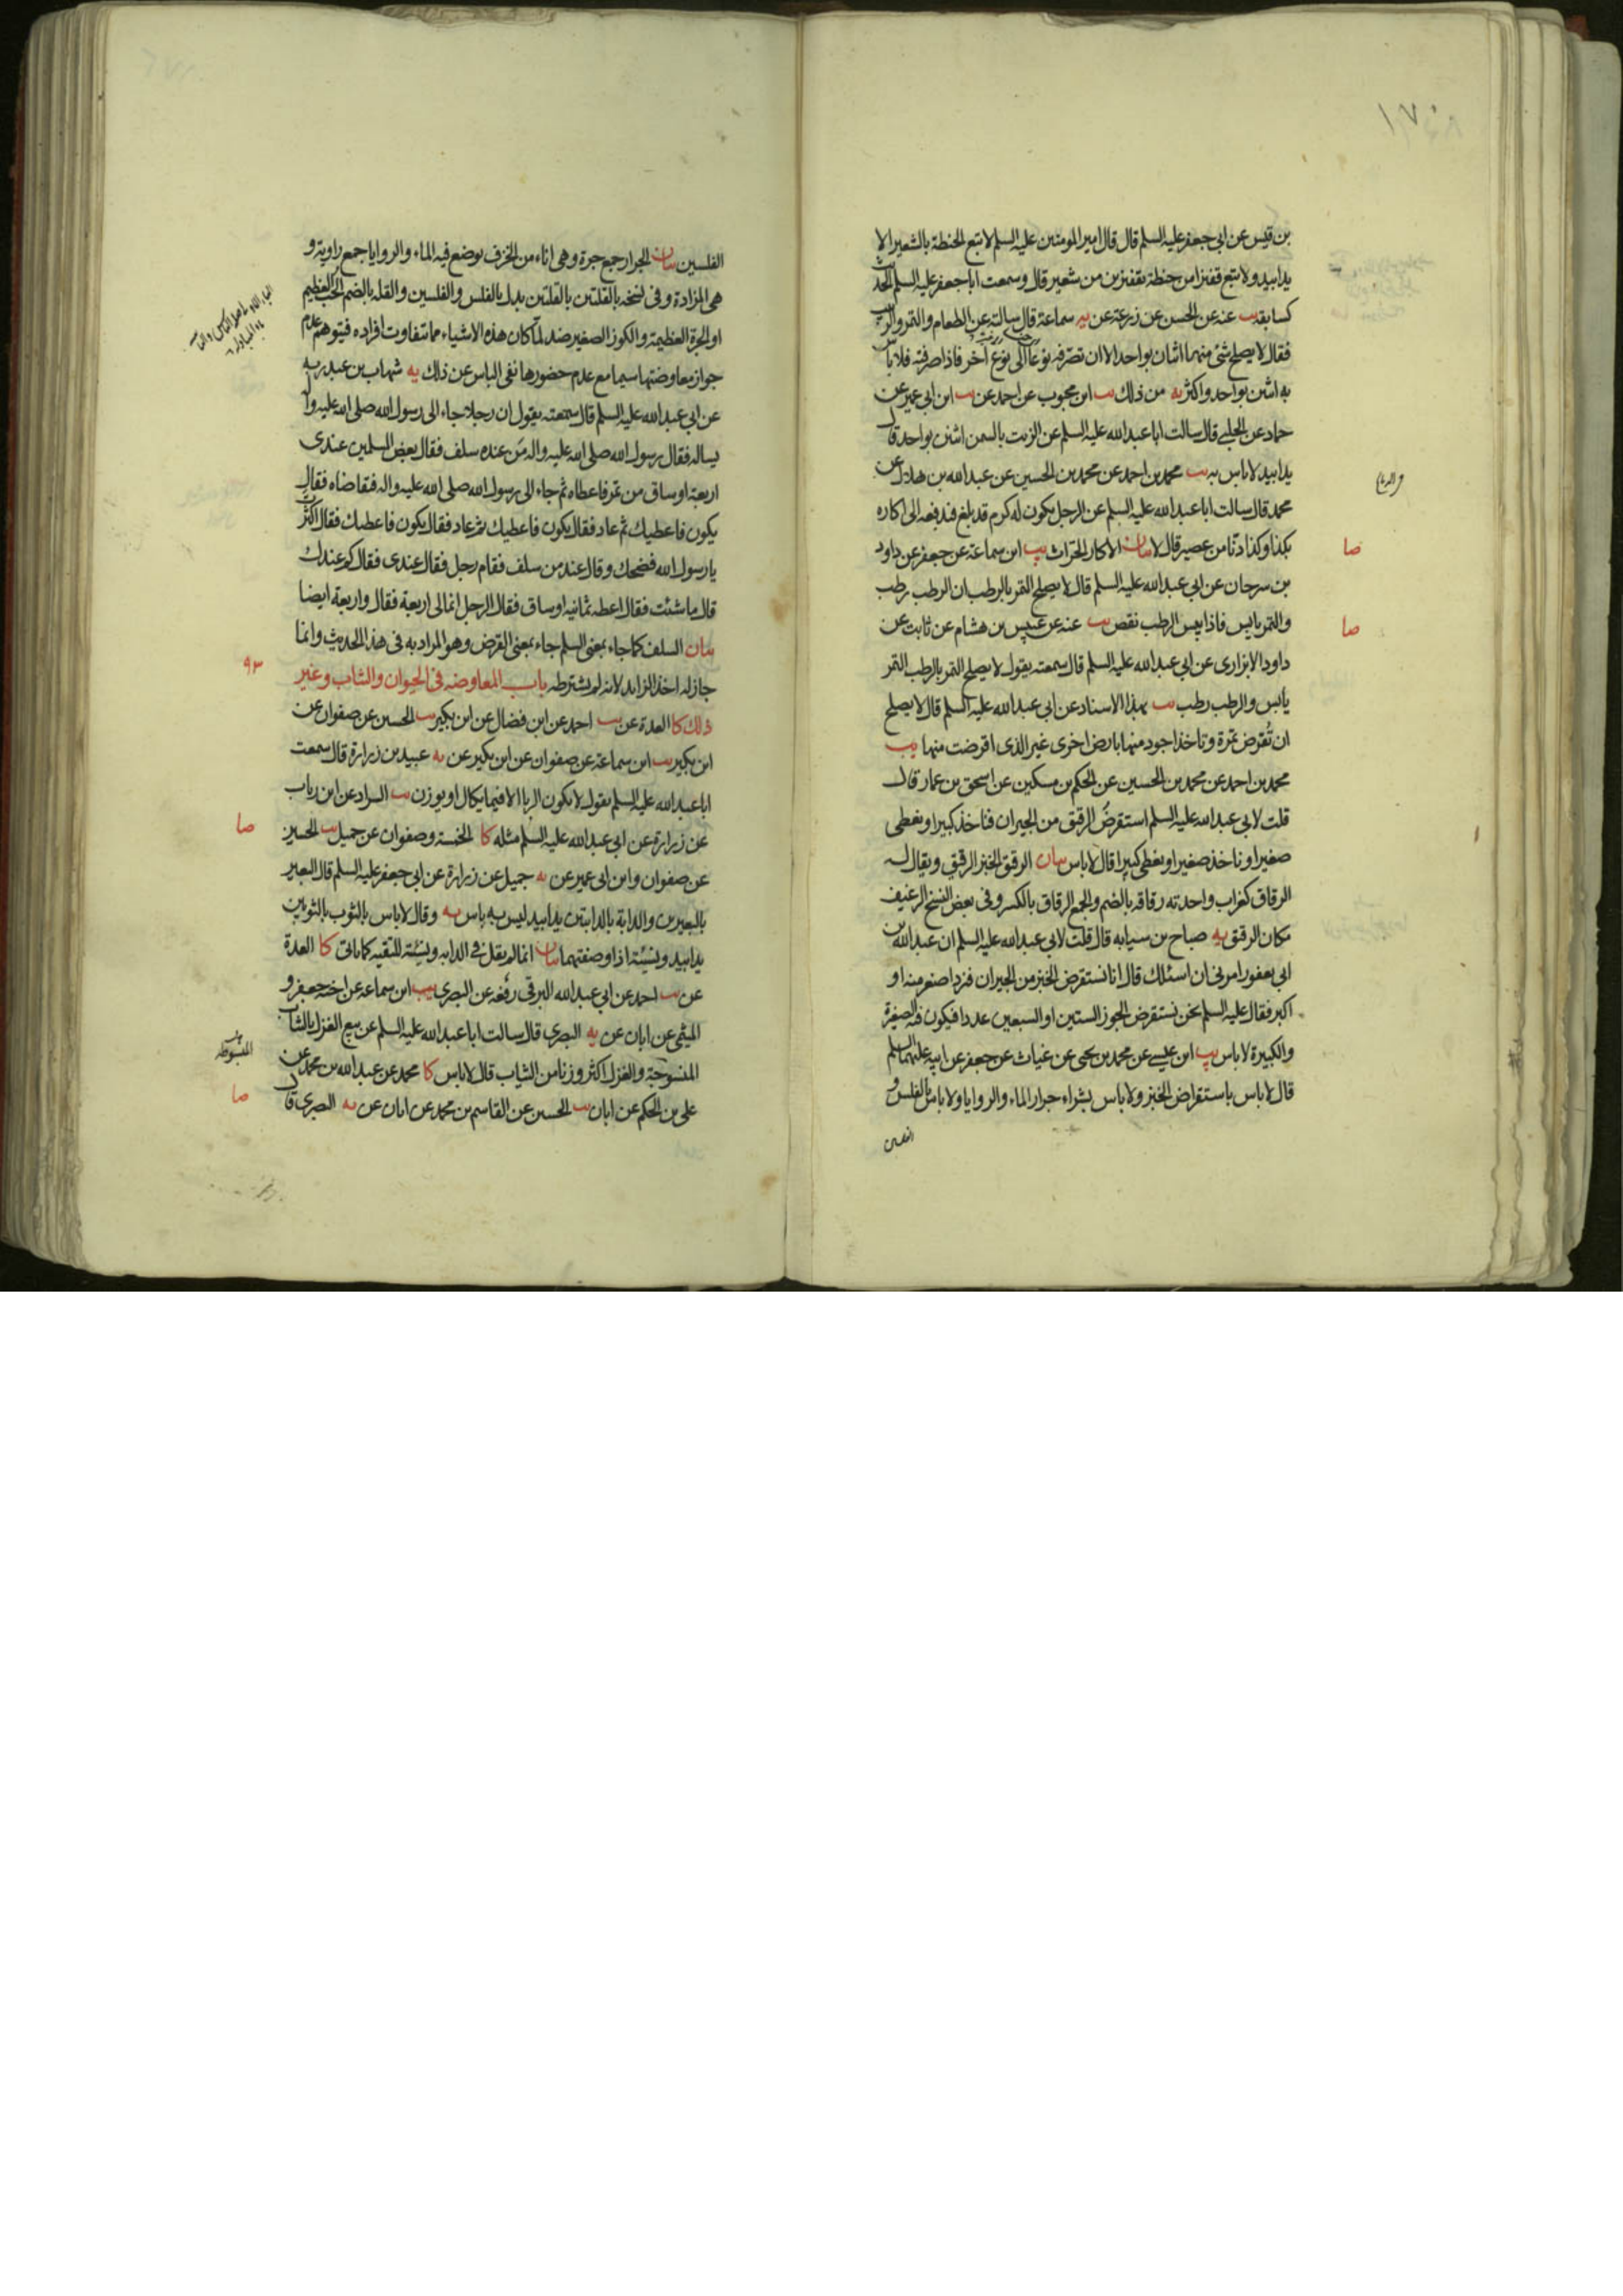 ١٧٠
بن قيس عن ابي جعفر عليه السلم قال قال امير المومنين عليه السلم لا تبع الحنطة بالشعير الا
يدا بيد ولا تبع قفيزا من حنطة بقفيزين من شعير قال وسمعت ابا جعفر عليه السلم الحديث
كسابقه يب عنه عن الحسن عن زرعة عن يه سماعة قال سالته عن الطعام والتمر والزبيب
فقال لا يصلح شئ منهما اثنان بواحد الا ان تصرفه نوعا الى نوع اخر فاذا صرفته فلا باس
به اثنين بواحد واكثر يه من ذلك يب ابن محبوب عن احمد عن يب ابن ابي عمير عن
حماد عن الحلبي قال سالت ابا عبد الله عليه السلم عن الزيت بالسمن اثنين بواحد قال
يدا بيد لا باس به يب محمد بن احمد عن محمد بن الحسين عن عبد الله بن هلال عن
محمد قال سالت ابا عبد الله عليه السلم عن الرجل يكون له كرم قد بلغ فيدفعه الى اكاره
بكذا وكذا دنا من عصير قال لا بيان الاكار الحراث يب ابن سماعة عن جعفر عن داود
صا
بن سرحان عن ابي عبد الله عليه السلم قال لا يصلح التمر بالرطب ان الرطب رطب
والتمر يابس فاذا يبس الرطب نقص يب عنه عن عبيس بن هشام عن ثابت عن
صا
داود الابزاري عن ابي عبد الله عليه السلم قال سمعته يقول لا يصلح التمر بالرطب التمر
يابس والرطب رطب يب بهذا الاسناد عن ابي عبد الله عليه السلم قال لا يصلح
ان تقرض تمرة وتاخذ اجود منها بارض اخرى غير الذى اقرضت منها يب
محمد بن احمد عن محمد بن الحسين عن الحكم بن مسكين عن اسحق بن عمار قال
قلت لابي عبد الله عليه السلم استقرض الرقيق من الجيران فناخذ كبيرا ونعطى
صغيرا وناخذ صغيرا ونعطى كبيرا قال لا باس بيان الرقيق الخبز الرقيق ويقال له
الرقاق كغراب واحدته رقاقه بالضم والجمع الرقاق بالكسر وفى بعض النسخ الرغيف
مكان الرقيق يه صباح بن سيابه قال قلت لابي عبد الله عليه السلم ان عبد الله بن
ابي يعفور امرنى ان اسئلك قال انا نستقرض الخبز من الجيران فنرد اصغر منه او
اكبر فقال عليه السلم نحن نستقرض الجوز الستين او السبعين عددا فيكون فيه الصغيرة
والكبيرة لا باس يب ابن عيسى عن محمد بن يحيى عن غياث عن جعفر عن ابيه عليهما السلم
قال لا باس باستقراض الخبز ولا باس بشراء جرار الماء والروايا ولا باس بالفلس و
الفلسين بيان الجرار جمع جرة وهى اناء من الخزف يوضع فيه الماء والروايا جمع راوية و
هى المزادة وفى نسخه بالقلتين بالقلتين بدل بالفلس والفلسين والقله بالضم الحب العظيم
او الجرة العظيمة والكوز الصغير ضد لما كان هذه الاشياء مما تتفاوت افراده فيتوهم عدم
جواز معاوضتها سيما مع عدم حضورها نفى الباس عن ذلك يه شهاب بن عبد ربه
عن ابي عبد الله عليه السلم قال سمعته يقول ان رجلا جاء الى رسول الله صلى الله عليه واله
يساله فقال رسول الله صلى الله عليه واله من عنده سلف فقال بعض المسلمين عندى
اربعة اوساق من تمر فاعطاه ثم جاء الى رسول الله صلى الله عليه واله فتقاضاه فقال
يكون فاعطيك ثم عاد فقال يكون فاعطيك ثم عاد فقال يكون فاعطيك فقال اكثرت
يا رسول الله فضحك وقال عند من سلف فقام رجل فقال عندى فقال كم عندك
قال ما شئت فقال اعطه ثمانية اوساق فقال الرجل انما لى اربعة فقال واربعة ايضا
بيان السلف كما جاء بمعنى السلم جاء بمعنى القرض وهو المراد به فى هذا الحديث وانما
جاز له اخذ الزايد لانه لم يشترطه باب المعاوضه فى الحيوان والثياب وغير
٩٣
ذلك كا العدة عن يب احمد عن ابن فضال عن ابن بكير يب الحسين عن صفوان عن
ابن بكير يب ابن سماعة عن صفوان عن ابن بكير عن يه عبيد بن زرارة قال سمعت
ابا عبد الله عليه السلم يقول لا يكون الربا الا فيما يكال او يوزن يب السراد عن ابن رياب
عن زرارة عن ابي عبد الله عليه السلم مثله كا الخمسة وصفوان عن جميل يب الحسين
صا
عن صفوان وابن ابي عمير عن يه جميل عن زرارة عن ابي جعفر عليه السلم قال البعير
بالبعيرين والدابة بالدابتين يدا بيد ليس به باس يه وقال لا باس بالثوب بالثوبين
يدا بيد ونسيئة اذا وصفتهما بيان انما لم يقل فى الدابه ونسيئة للتقيه كما ياتى كا العدة
عن يب احمد عن ابي عبد الله البرقى رفعه عن البصرى يب ابن سماعة عن اخيه جعفر و
الميثمى عن ابان عن يه البصرى قال سالت ابا عبد الله عليه السلم عن بيع الغزل بالثياب
المبسوطة
المنسوجة والغزل اكثر وزنا من الثياب قال لا باس كا محمد عن عبد الله بن محمد عن
على بن الحكم عن ابان يب الحسين عن القاسم بن محمد عن ابان عن يه البصرى قال
صا